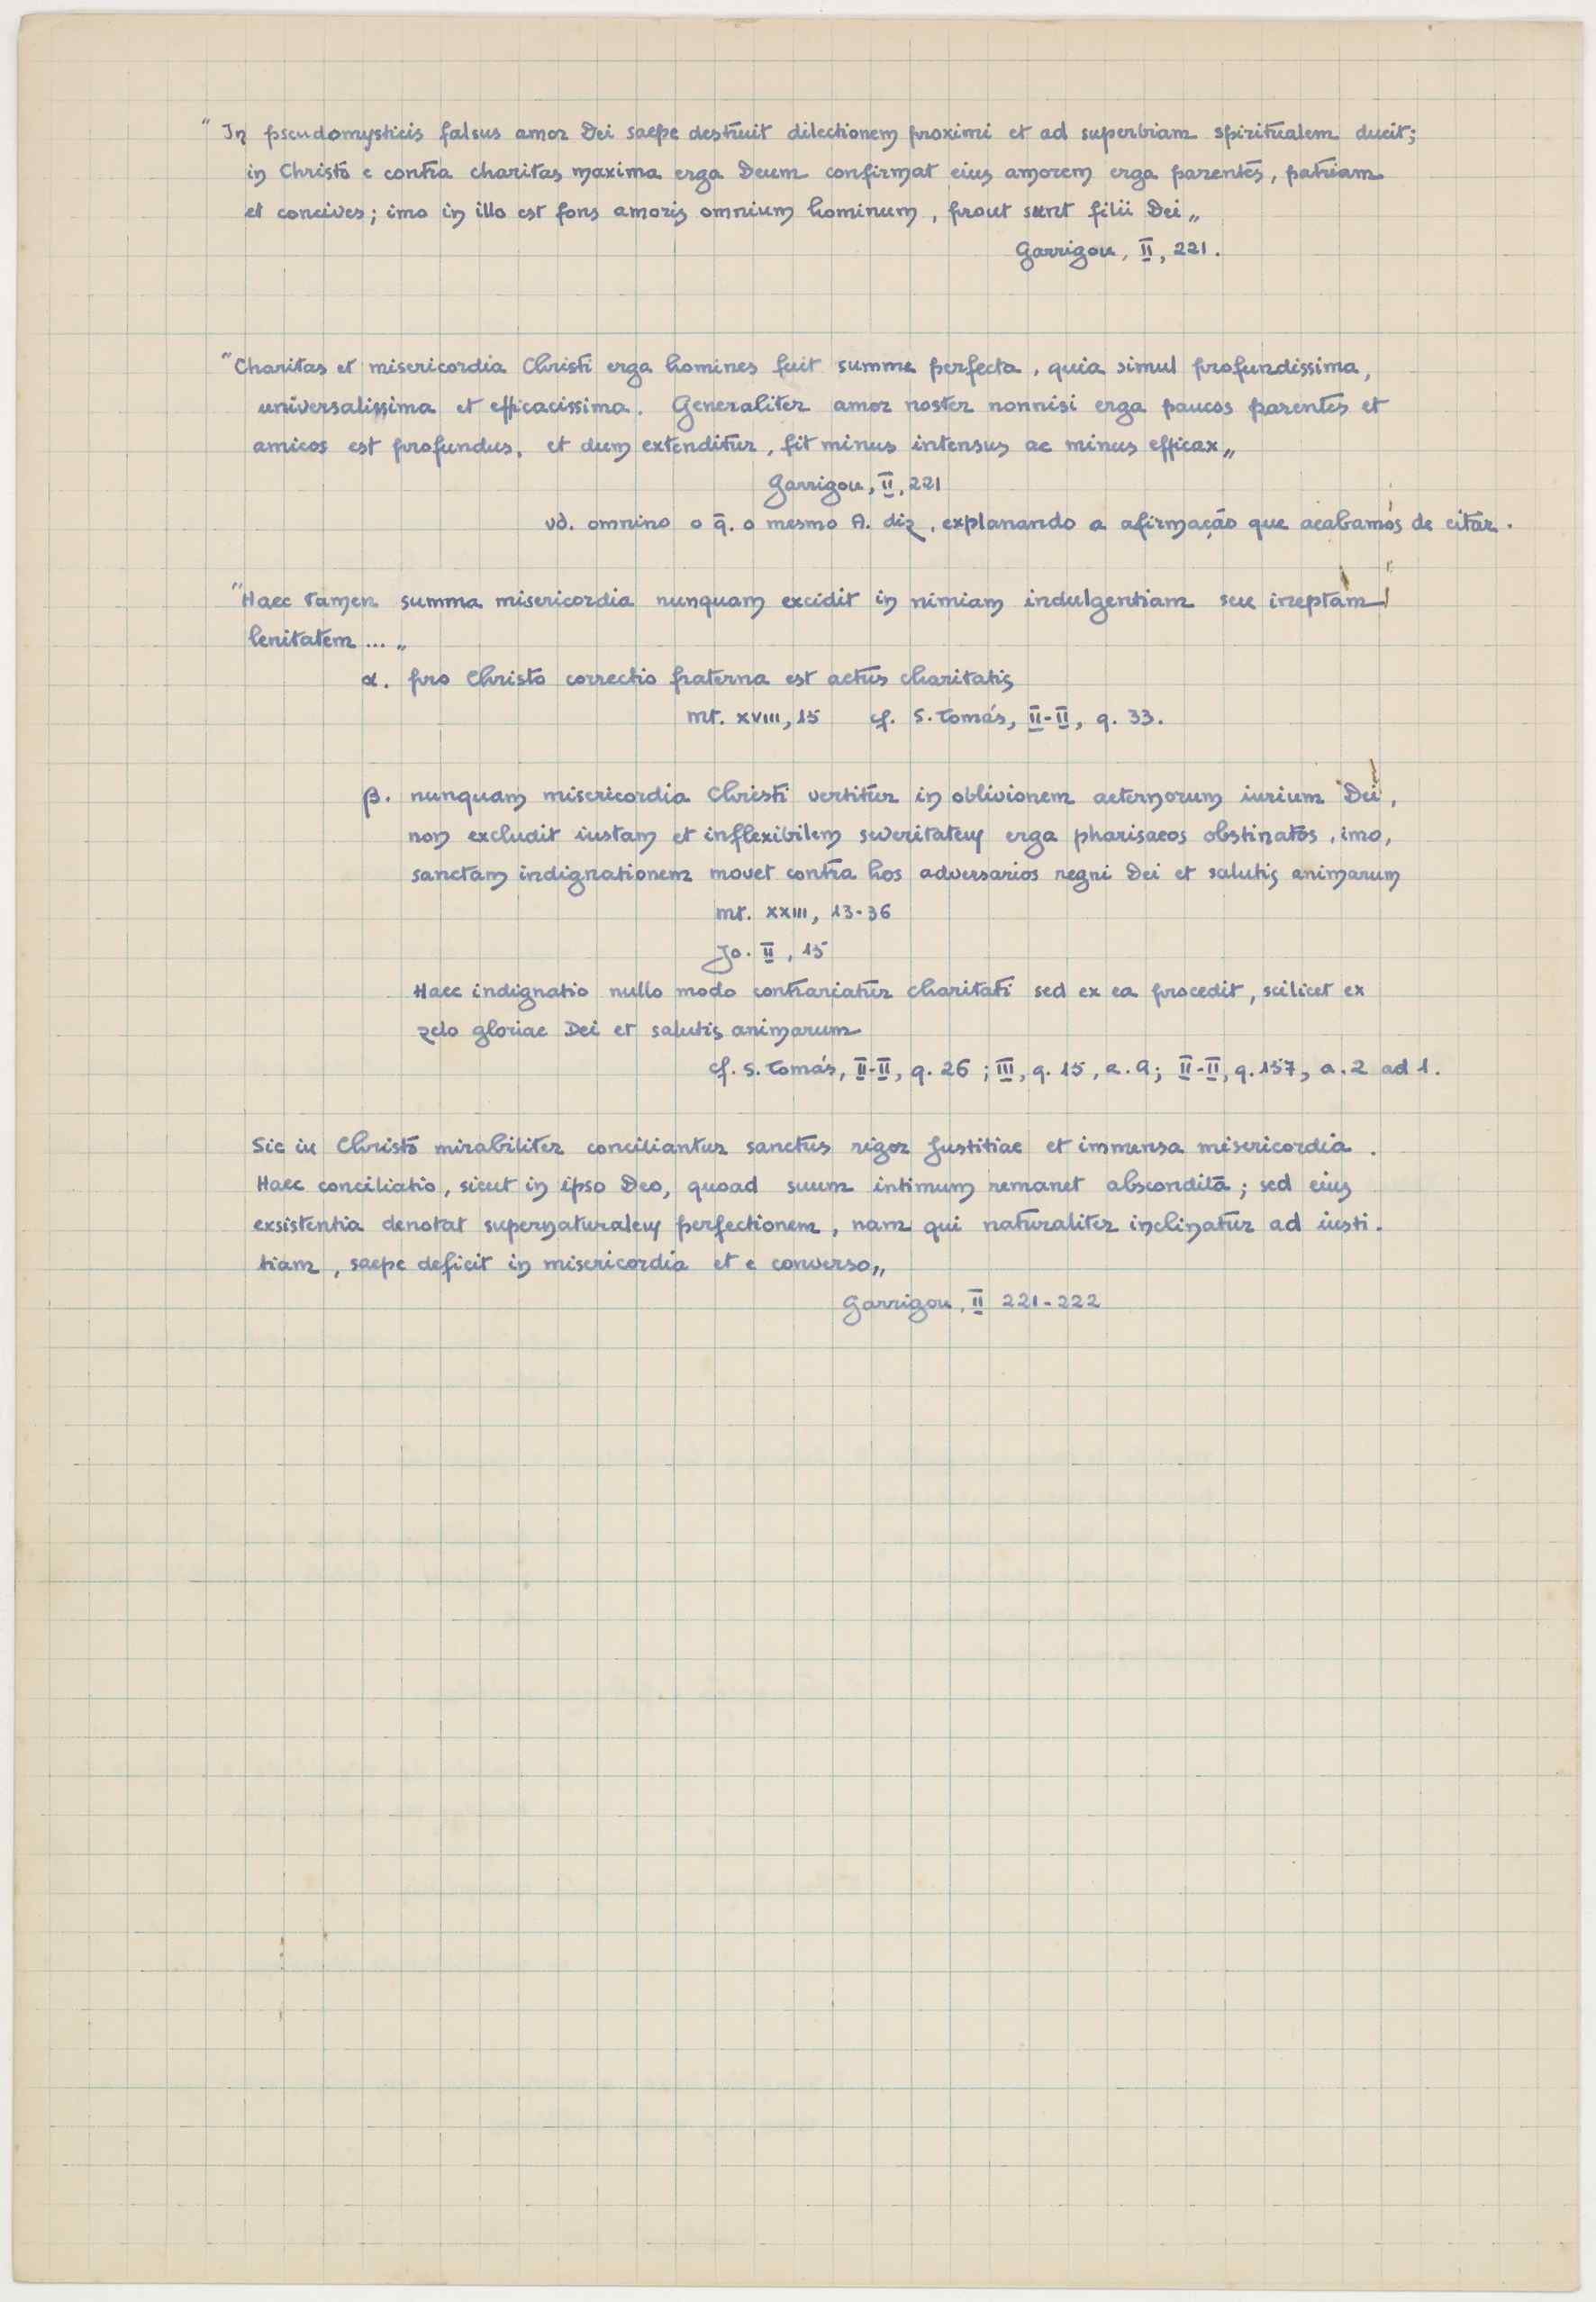 "In pseudomysticis falsus amor Dei saepe destruit dilectionem proximi et ad superbiam spiritualem ducit;
in Christo e contra charitas maxima erga Deum confirmat eius amorem erga parentes, patriam
et concives; imo in illo est fons amoris omnium hominum, prout sunt filii Dei„
Garrigou, II, 221.
"Charitas et misericordia Christi erga homines fuit summe perfecta, quia simul profundissima,
universalissima et efficacissima. Generaliter amor noster nonnisi erga paucos parentes et
amicos est profundus, et dum extenditur, fit minus intensus ac minus efficax„
Garrigou, II, 221
vd. omnino o q̄. o mesmo A. diz, explanando a afirmação que acabamos de citar.
"Haec tamen summa misericordia nunquam excidit in nimiam indulgentiam seu ineptam
lenitatem...„
α. pro Christo correctio fraterna est actus charitatis
Mt. XVIII, 15 cf. S. Tomás, II-II, q. 33.
β. nunquam misericordia Christi vertitur in oblivionem aeternorum iurium Dei,
non excludit iustam et inflexibilem severitatem erga pharisaeos obstinatos, imo,
sanctam indignationem movet contra hos adversarios regni Dei et salutis animarum
Mt. XXIII, 13-36
Jo. II, 15
Haec indignatio nullo modo contrariatur charitati sed ex ea procedit, scilicet ex
zelo gloriae Dei et salutis animarum
cf. S. Tomás, II-II, q. 26; III, q. 15, a. 9; II-II, q. 157, a. 2 ad 1.
Sic in Christo mirabiliter conciliantur sanctus rigor Justitiae et immensa misericordia.
Haec conciliatio, sicut in ipso Deo, quoad suum intimum remanet abscondita; sed eius
exsistentia denotat supernaturalem perfectionem, nam qui naturaliter inclinatur ad iusti-
tiam, saepe deficit in misericordia et e converso„
Garrigou, II 221-222